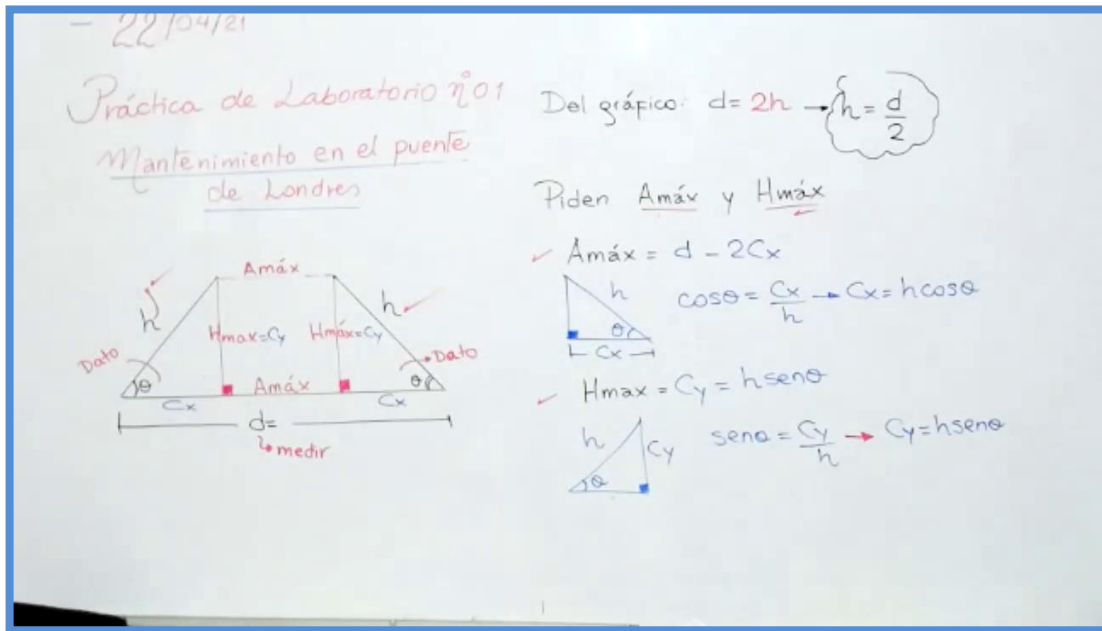 - 22/04/21
Práctica de Laboratorio n°01
Mantenimiento en el puente
de Londres
Amáx
h
h
Hmax=Cy
Hmáx=Cy
Dato
Dato
θ
θ
Amáx
Cx
Cx
d=
medir
Del gráfico: d= 2h → h = d/2
Piden Amáx y Hmáx
✓ Amáx = d - 2Cx
h
θ
Cx
cosθ = Cx/h → Cx= hcosθ
✓ Hmax = Cy = hsenθ
h
Cy
θ
senθ = Cy/h → Cy=hsenθ